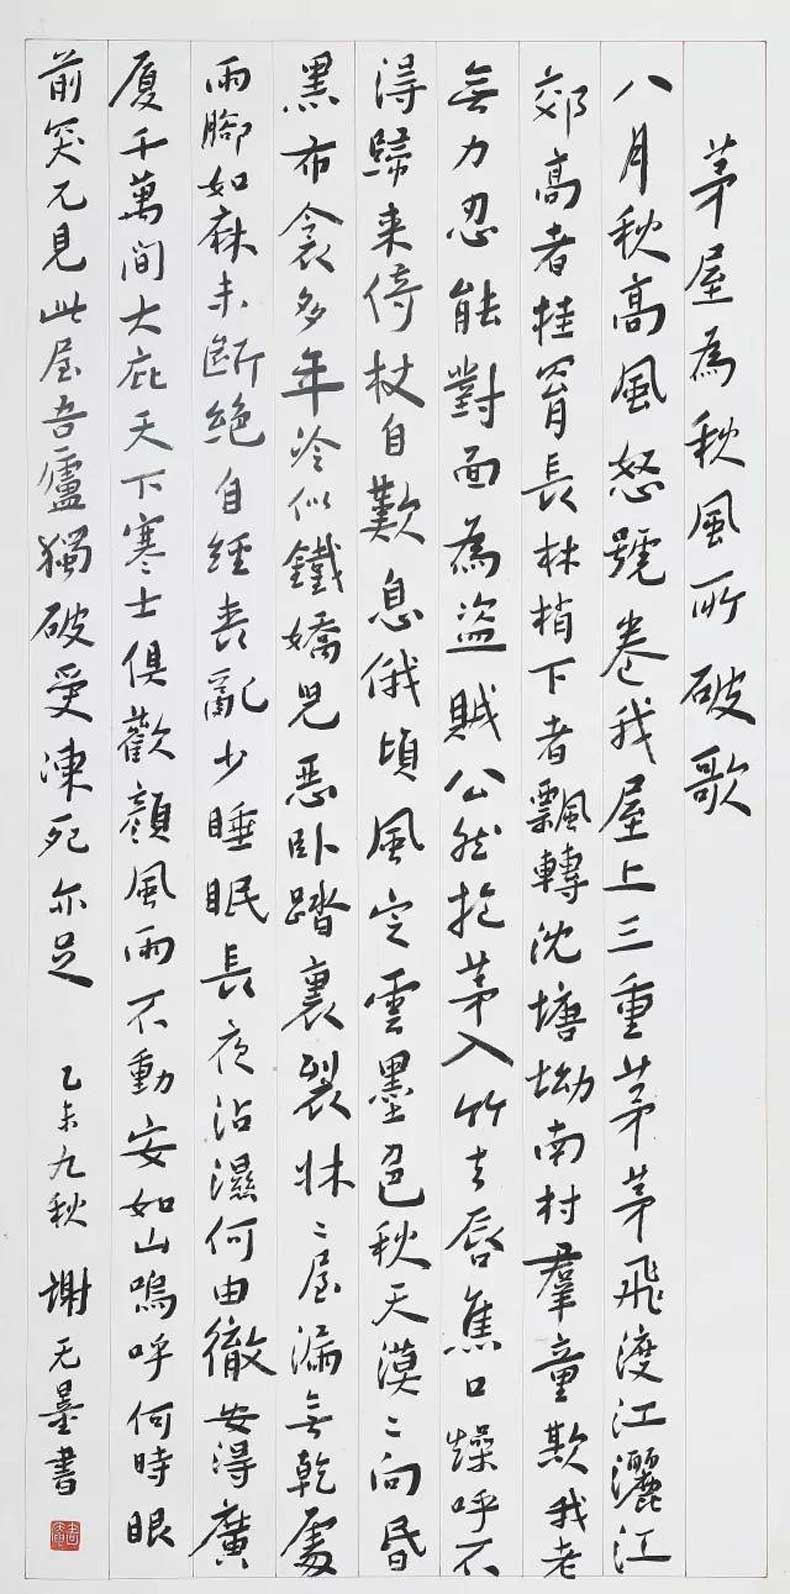 茅屋為秋風所破歌
八月秋高風怒號卷我屋上三重茅茅飛渡江灑江
郊高者挂罥長林梢下者飄轉沈塘坳南村羣童欺我老
無力忍能對面為盜賊公然抱茅入竹去唇焦口燥呼不
得歸來倚杖自歎息俄頃風定雲墨色秋天漠〻向昏
黑布衾多年冷似鐵嬌兒惡卧踏裏裂牀〻屋漏無乾處
雨腳如麻未斷絕自經喪亂少睡眠長夜沾濕何由徹安得廣
厦千萬間大庇天下寒士俱歡顏風雨不動安如山嗚呼何時眼
前突兀見此屋吾廬獨破受凍死亦足 乙未九秋 謝无量書